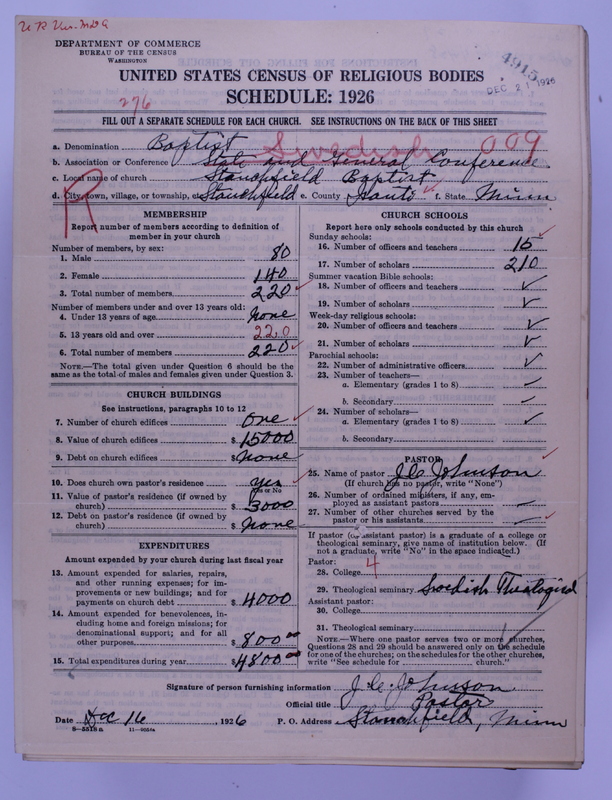 DEPARTMENT OF COMMERCE
BUREAU OF THE CENSUS
WASHINGTON
4915
DEC 21 1926
UNITED STATES CENSUS OF RELIGIOUS BODIES
276
SCHEDULE: 1926
FILL OUT A SEPARATE SCHEDULE FOR EACH CHURCH. SEE INSTRUCTIONS ON THE BACK OF THIS SHEET
a. Denomination Baptist Swedish 009
b. Association or Conference State and General Conference
c. Local name of church Stanchfield Baptist
d. City, town, village, or township, etc. Stanchfield e. County Isanti f. State Minn
R
MEMBERSHIP
Report number of members according to definition of
member in your church
Number of members, by sex:
1. Male 80
2. Female 140
3. Total number of members 220
Number of members under and over 13 years old:
4. Under 13 years of age none
5. 13 years old and over 220
6. Total number of members 220
NOTE.—The total given under Question 6 should be the
same as the total of males and females given under Question 3.
CHURCH BUILDINGS
See instructions, paragraphs 10 to 12
7. Number of church edifices One
8. Value of church edifices $15000
9. Debt on church edifices $None
10. Does church own pastor's residence yes
Yes or No
11. Value of pastor's residence (if owned by
church) $3000
12. Debt on pastor's residence (if owned by
church) $none
EXPENDITURES
Amount expended by your church during last fiscal year
13. Amount expended for salaries, repairs,
and other running expenses; for im-
provements or new buildings; and for
payments on church debt $4000
14. Amount expended for benevolences, in-
cluding home and foreign missions; for
denominational support; and for all
other purposes $800 00
15. Total expenditures during year $4800 00
CHURCH SCHOOLS
Report here only schools conducted by this church
Sunday schools:
16. Number of officers and teachers 15
17. Number of scholars 210
Summer vacation Bible schools:
18. Number of officers and teachers
19. Number of scholars
Week-day religious schools:
20. Number of officers and teachers
21. Number of scholars
Parochial schools:
22. Number of administrative officers
23. Number of teachers—
a. Elementary (grades 1 to 8)
b. Secondary
24. Number of scholars—
a. Elementary (grades 1 to 8)
b. Secondary
PASTOR
25. Name of pastor J. C. Johnson
(If church has no pastor, write "None")
26. Number of ordained ministers, if any, em-
ployed as assistant pastors
27. Number of other churches served by the
pastor or his assistants
If pastor (or assistant pastor) is a graduate of a college or
theological seminary, give name of institution below. (If
not a graduate, write "No" in the space indicated.)
Pastor:
28. College 4
29. Theological seminary Swedish Theological
Assistant pastor:
30. College
31. Theological seminary
NOTE.—Where one pastor serves two or more churches,
Questions 28 and 29 should be answered only on the schedule
for one of the churches; on the schedules for the other churches,
write "See schedule for church."
Signature of person furnishing information J. C. Johnson
Official title Pastor
Date Dec 16, 1926 P. O. Address Stanchfield, Minn
8—5518a 11—9054a